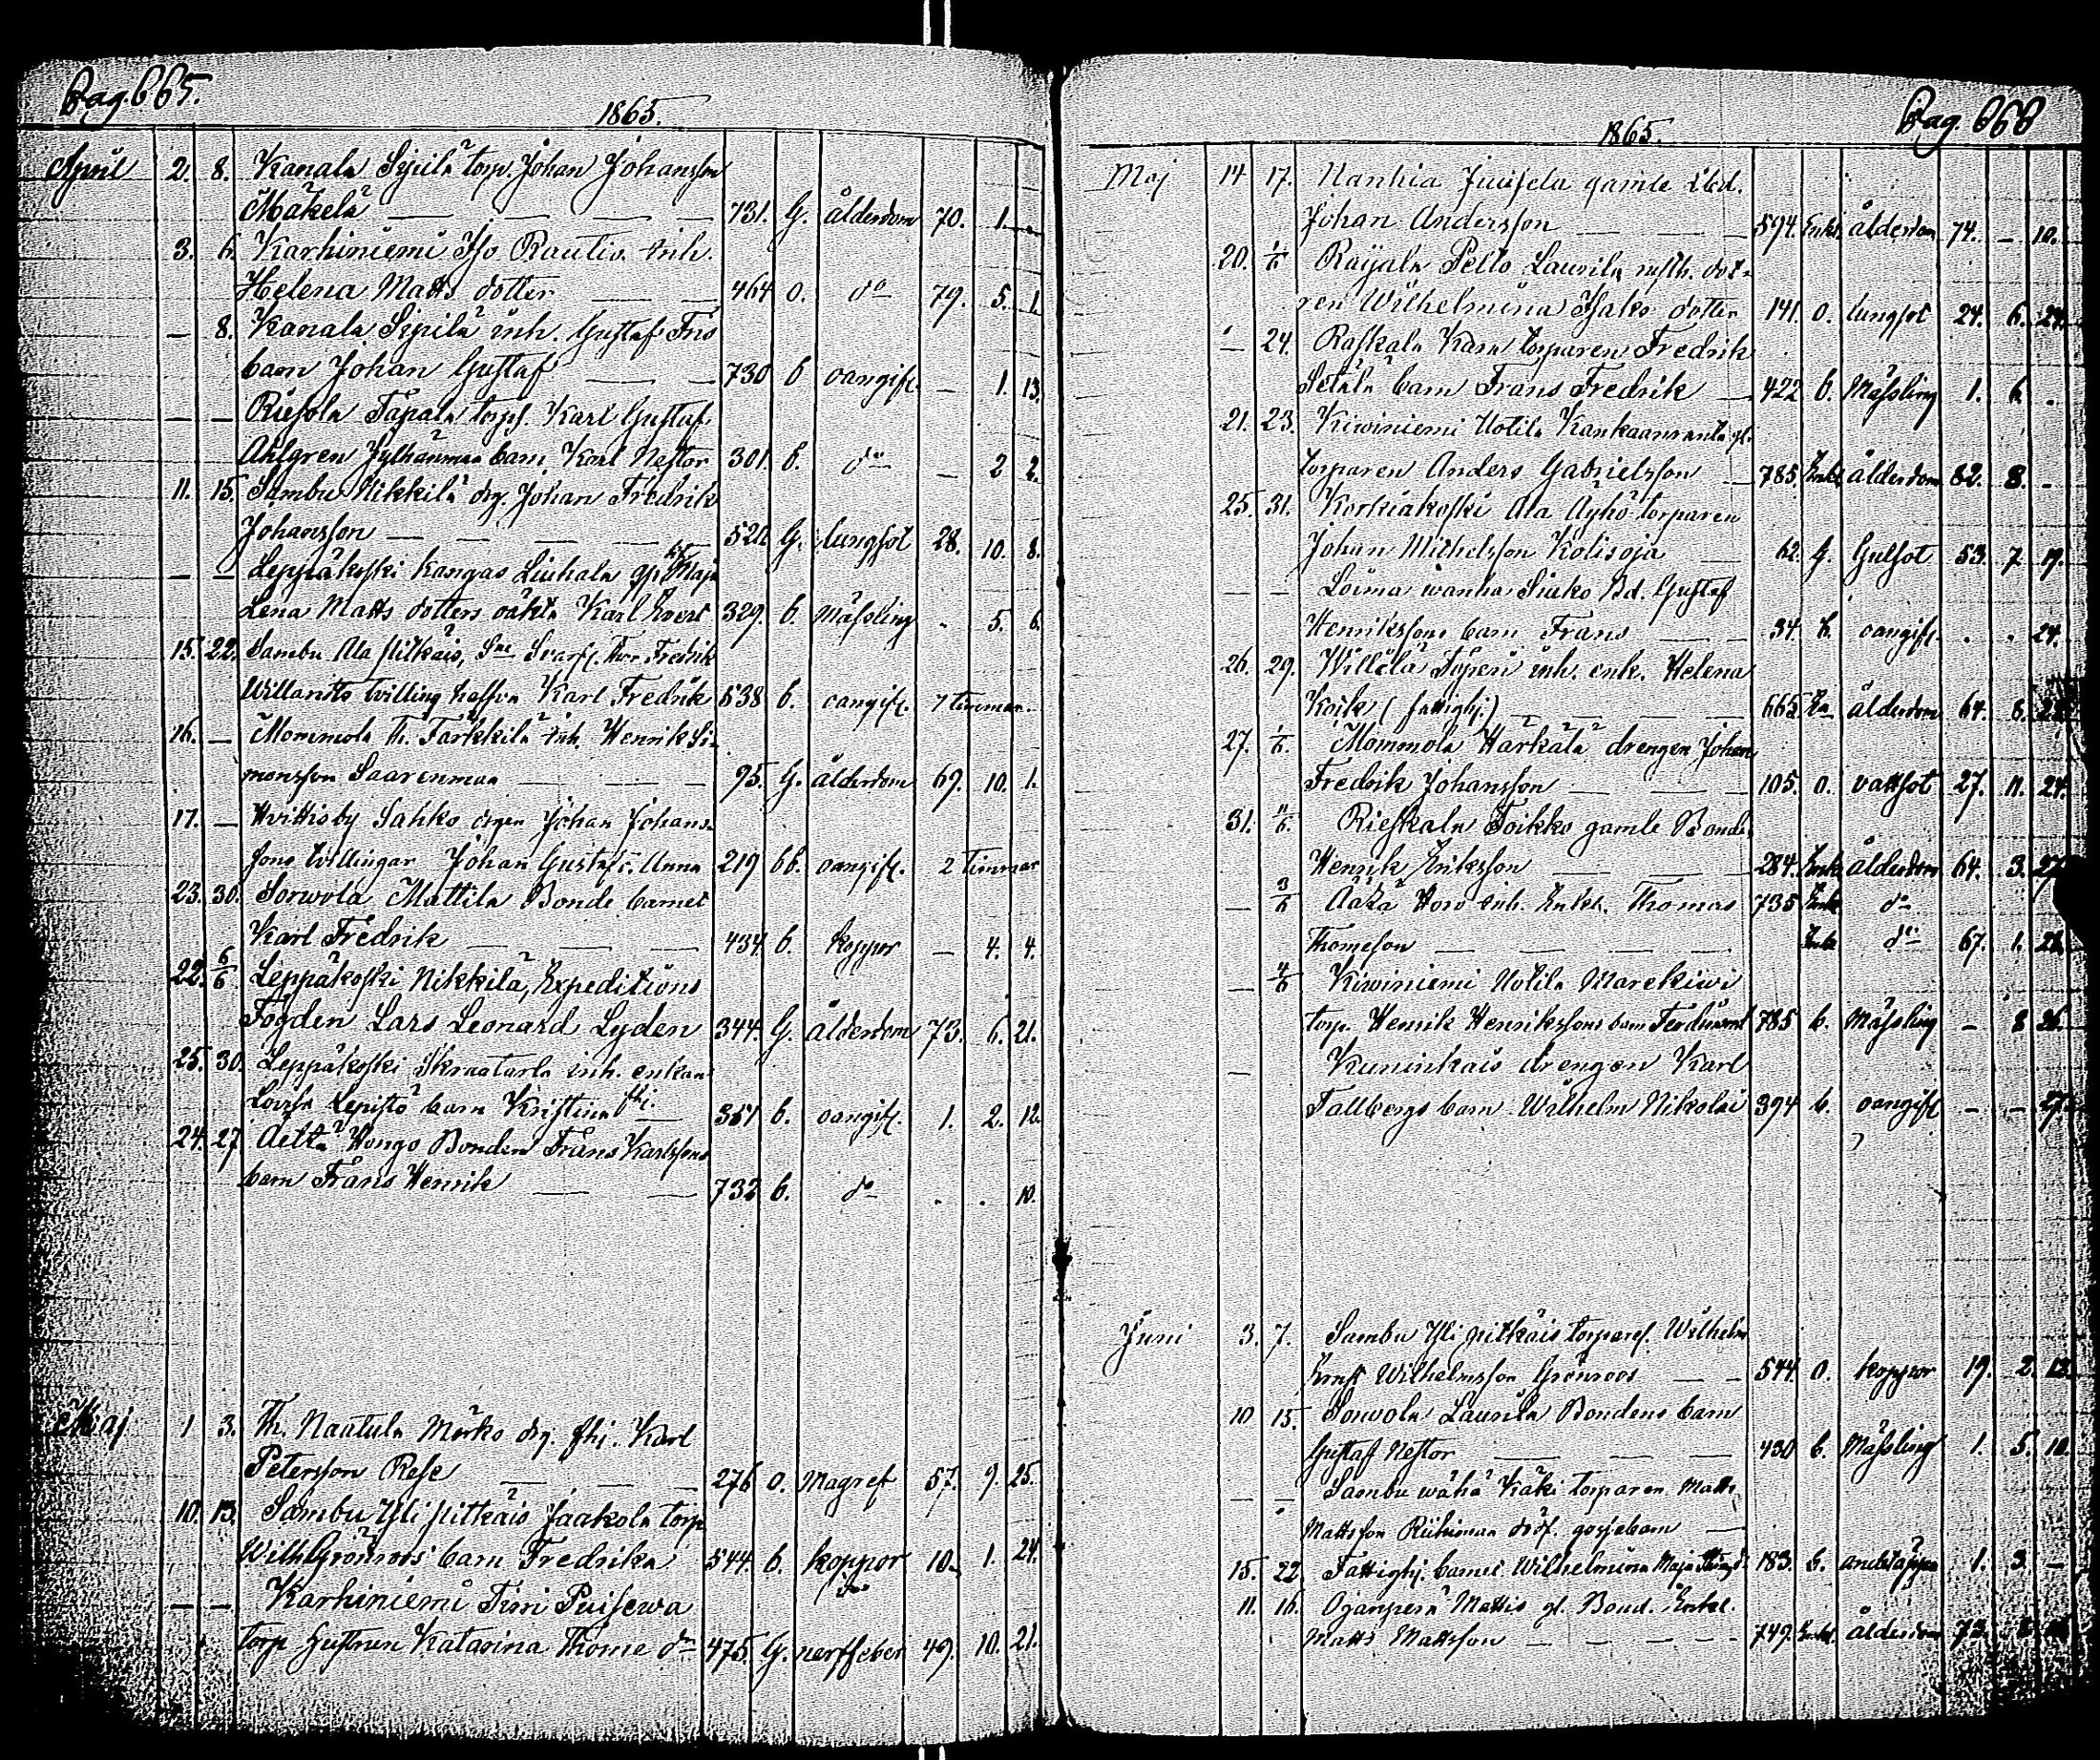 Pag. 665.
1865.
April 2. 8. Kanala Sipilä torp. Johan Johansson
Mäkelä — — — — 731. G. ålderdom 70. 1. —
3. 6. Karhiniemi Iso Rautio inh.
Helena Matts dotter — — 464 o. do 79. 5. 1.
— 8. Kanala Sipilä inh. Gustaf Friis
barn Johan Gustaf — — 730 b oangift. — 1. 13.
— — Riesola Tapala torp. Karl Gustaf
Ahlgren Jylhänmaa barn Karl Nestor 301. b. do — 2 2.
11. 15. Sambu Nikkilä drg. Johan Fredrik
Johansson — — — — 520. G. lungsot 28. 10. 8.
— — Leppäkoski Kangas Liuhala qp Maja
Lena Matts dotters oäkta Karl Evert 329. b. Mässling - 5. 6.
15. 22. Sambu Ala pitkäis, Fredrik
Willandts tvilling Karl Fredrik 538 b. oangift. 7 timmar.
16. — Mommola Th. Tarkkila inh. Henrik Si-
monsson Saarenmaa — — — 95. G. ålderdom 69. 10. 1.
17. — Hvittisby Sahko drgen Johan Johans-
sons tvillingar Johan Gustaf o. Anna 219 bb. oangift. 2 Timmar
23. 30. Sorwola Mattila Bonde barnet
Karl Fredrik — — — 434. b. koppor — 4. 4.
22. 6/6. Leppäkoski Nikkilä, Expeditions
Fogden Lars Leonard Lyden 344. G. ålderdom 73. 6. 21.
25. 30. Leppäkoski Skraatarla inh. enkan
Lovisa Lepistö barn Kristina fhj. — 351 b. oangift. 1. 2. 12.
24. 27. Aettä Hongo Bonden Frans Karlssons
barn Frans Henrik — — 732 b. do . . 10.
Maj 1 3. Th. Naatula Mörkö drg. fhj. Karl
Petersson Rese — — — 276 o. Magref 57. 9. 25.
10. 13. Sambu Yli pitkäis Jaakola torp
Wilh Grönroos barn Fredrika 544. b. koppor 10. 1. 24.
— — Karhiniemi Turi Puisewa do
torp hustrun Katarina Thome dr 475. G. nerffeber 49. 10. 21.
Pag. 666
1865.
Maj 14 17. Nanhia Juusela gamle Bd.
Johan Andersson — — 594. Enkl. ålderdom 74. — 10.
20. 1/6 Raijala Pelto Laurila rusth. dot-
ren Wilhelmina Isaks dotter 141. o. lungsot 24. 6. 24.
— 24. Raskala Karra torparen Fredrik
Setälä barn Frans Fredrik — 422 b. Mässling 1. 6 .
21. 23. Kiwiniemi Uotila Kankaanranta gl.
torparen Anders Gabrielsson — 785. Enkl. ålderdom 82. 8. -
25. 31. Korkiakoski Ala Äyhö torparen
Johan Michelsson Kolisoja — 62. G. Gulsot 53. 7. 19.
— — Loima wanha Siuko Bd. Gustaf
Henrikssons barn Frans — — 34. b. oangift. . . 24.
26. 29. Willilä Typeri inh. enk. Helena
Krök (fattighj.) — — — 665. En ålderdom 64. 8.
27. 1/6. Mommola Harkala drengen Johan
Fredrik Johansson — — — 105. o. vattsot 27. 11. 24.
31. 11/6. Rieskala Toikko gamle Bonde
Henrik Eriksson — — 284. Enkl. ålderdom 64. 3. 27.
— 3/6 Äätä inh. Enkl. Thomas 735 Enkl. do
Thomeson — — — — Enkl do 67. 1. 22.
— 4/6 Kiwiniemi Uotila Marekiwi
torp. Henrik Henrikssons barn Ferdinand 785 b. Mässling — 8 26.
— Kuninkais drengen Karl
Tallbergs barn Wilhelm Nikolai 394 b. oangift — — 27.
Juni 3. 7. Sambu Yli pitkäis torpares. Wilhelm
Ernst Wilhelmsson Grönroos — — 544. o. koppor 19. 2. 13.
10 15. Sorwola Laurila Bondens barn
Gustaf Nestor — — — 430 b. Mässling 1. 5. 10.
— — Sambu wähä Käki torparen Matts
Mattsson Riihimaa död. gossebarn —
15. 22. Fattighj. barnet Wilhelmina Maja 183. b. andtäppa 1. 3. —
11. 16. Ojanperä Mattis gl. Bond. Enkl.
Matts Mattsson — — — — — 749. Enkl. ålderdom 73.